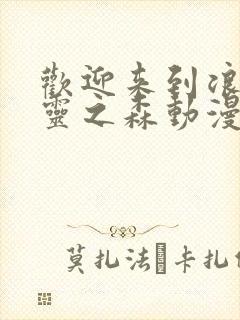 歡迎来到
靈之森動漫
莫扎法卡扎